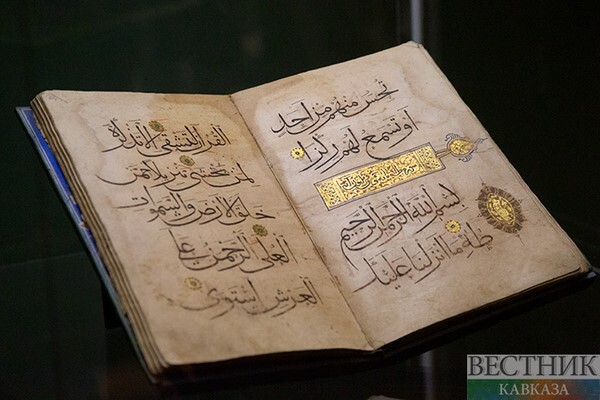 تحس منهم من احد
او تسمع لهم ركزا
بسم الله الرحمن الرحيم
طه ما انزلنا عليك
القرآن لتشقى الا تذكرة
لمن يخشى تنزيلا ممن
خلق الارض والسموات
العلى الرحمن على
العرش استوى
ВЕСТНИК
КАВКАЗА